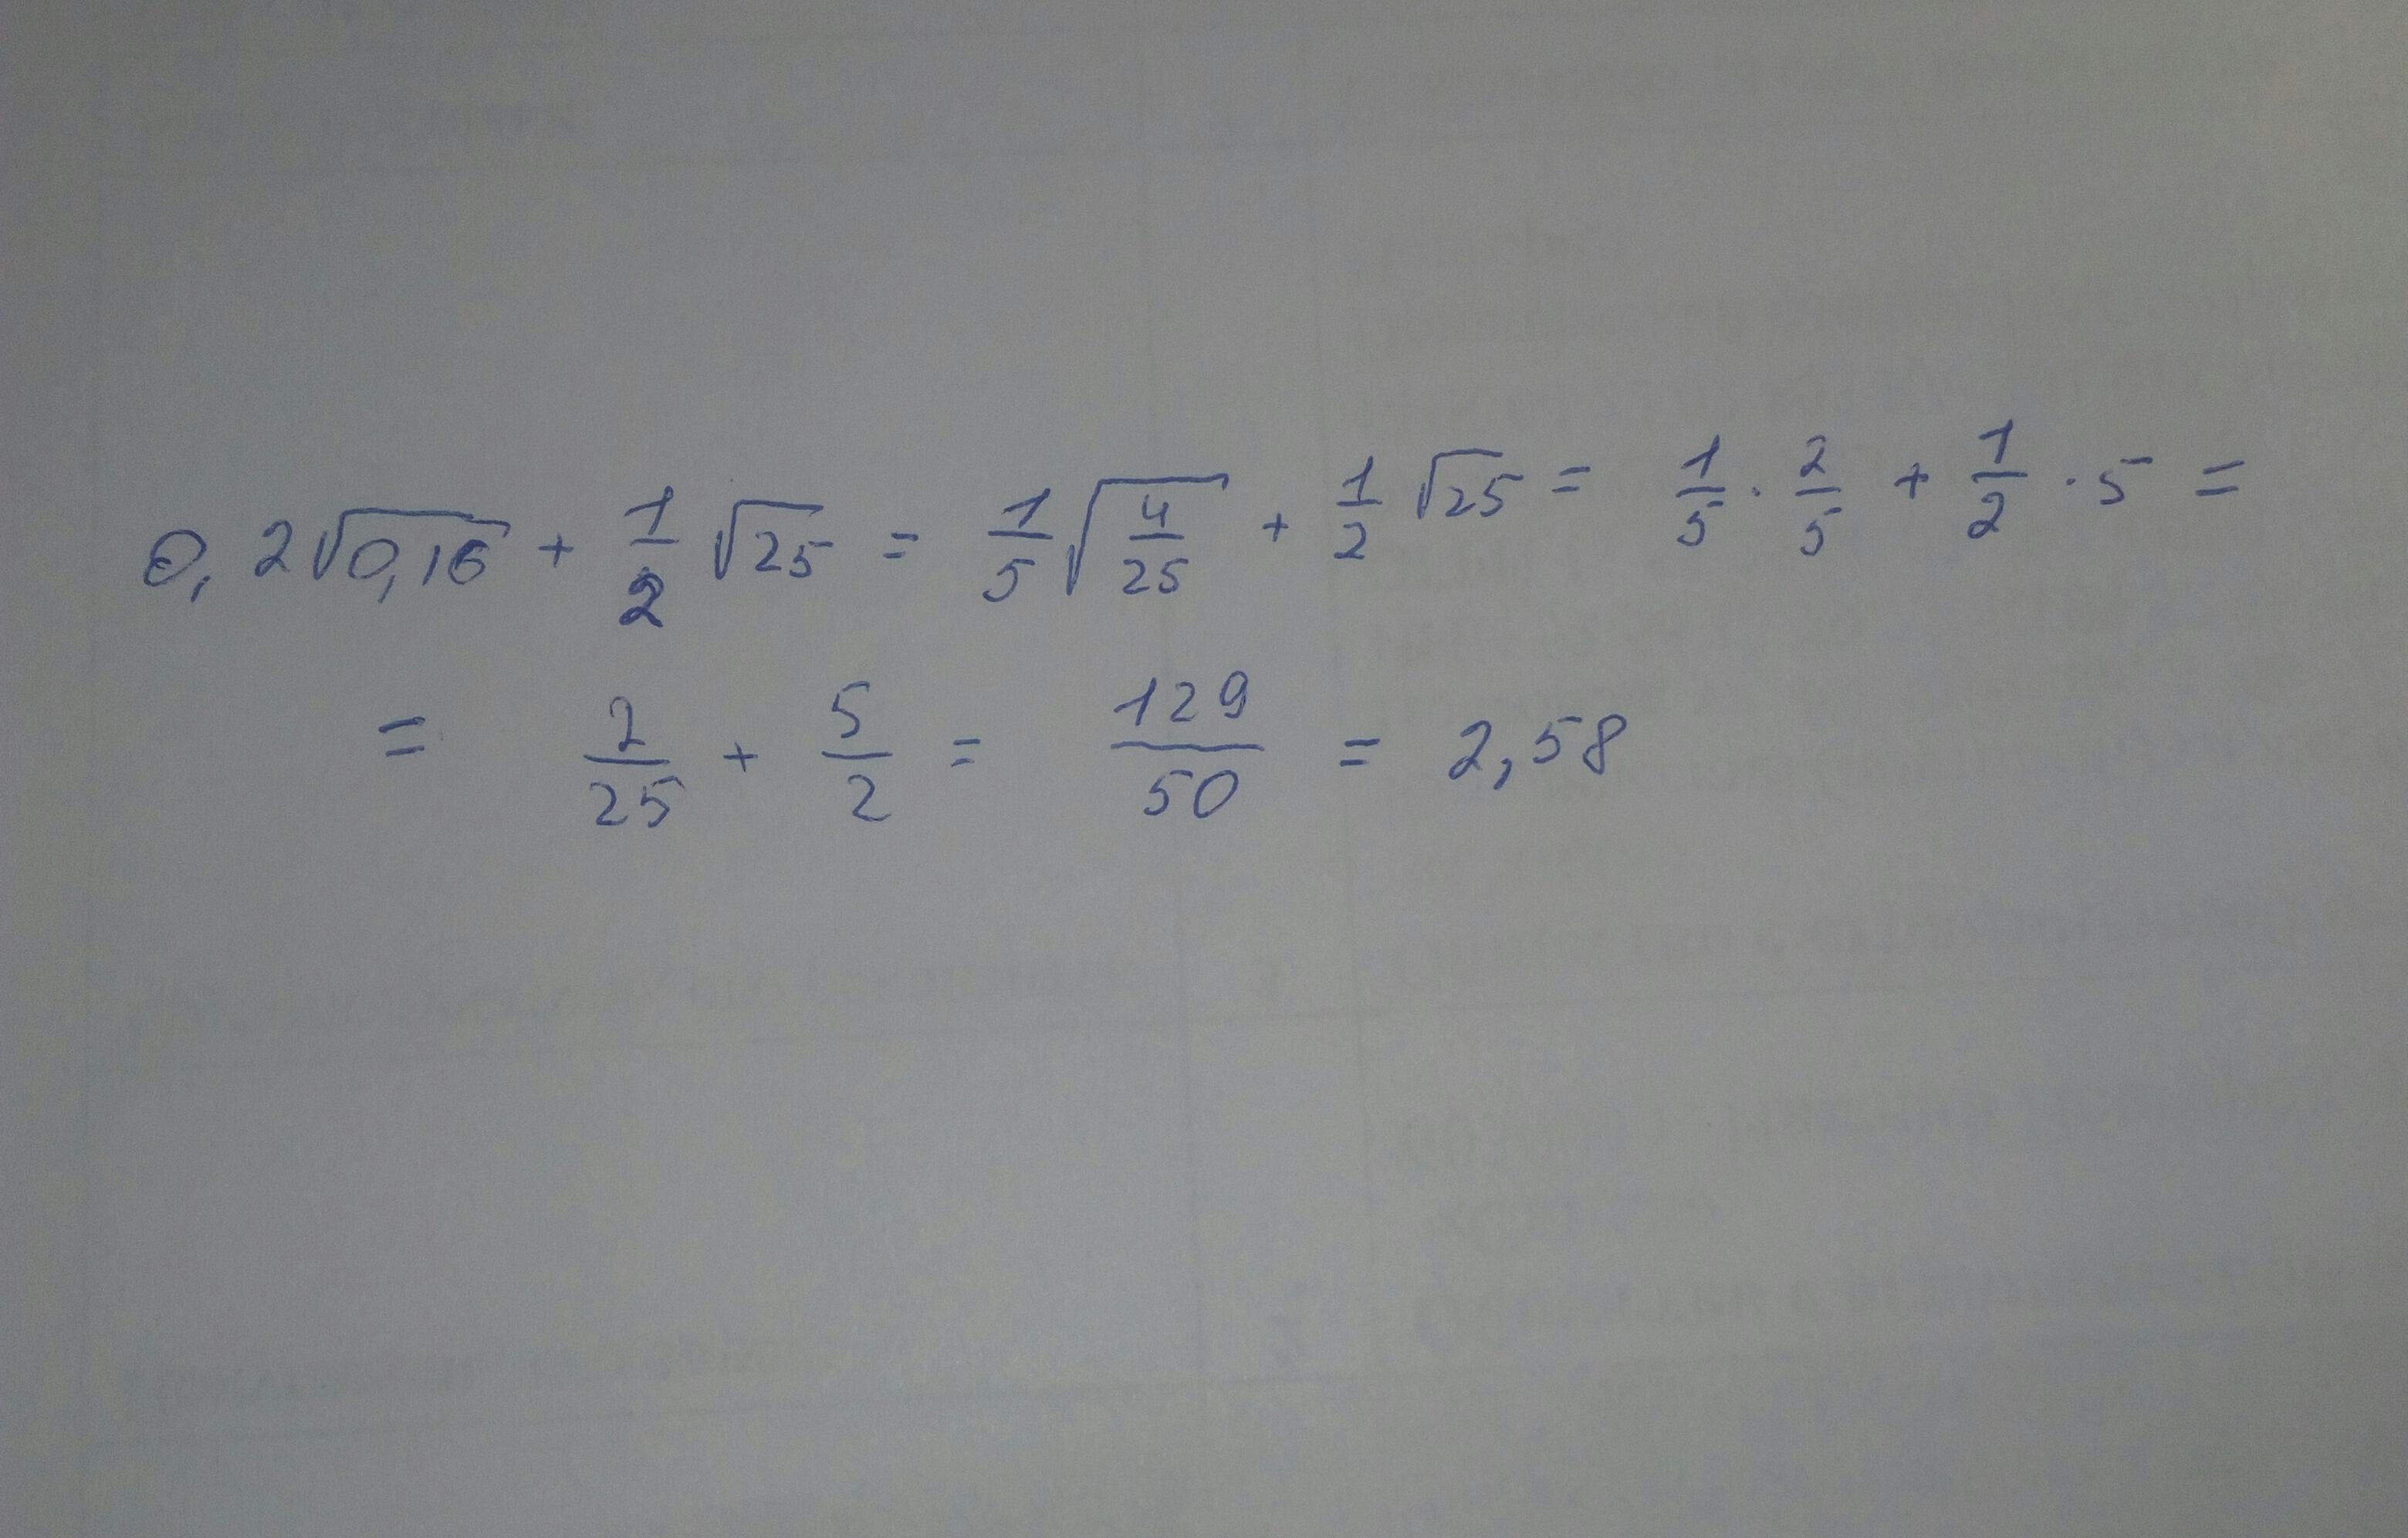 0,2√0,16 + 1/2 √25 = 1/5 √(4/25) + 1/2 √25 = 1/5 · 2/5 + 1/2 · 5 =
= 2/25 + 5/2 = 129/50 = 2,58